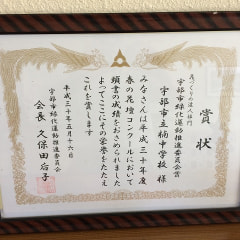 賞状
花づくりの達人部門
宇部市緑化運動推進委員会賞
宇部市立楠中学校 様
みなさんは平成三十年度
春の花壇コンクールにおいて
頭書の成績をおさめられました
よってここにその栄誉をたたえ
これを賞します
平成三十年五月十六日
宇部市緑化運動推進委員会
会長 久保田后子